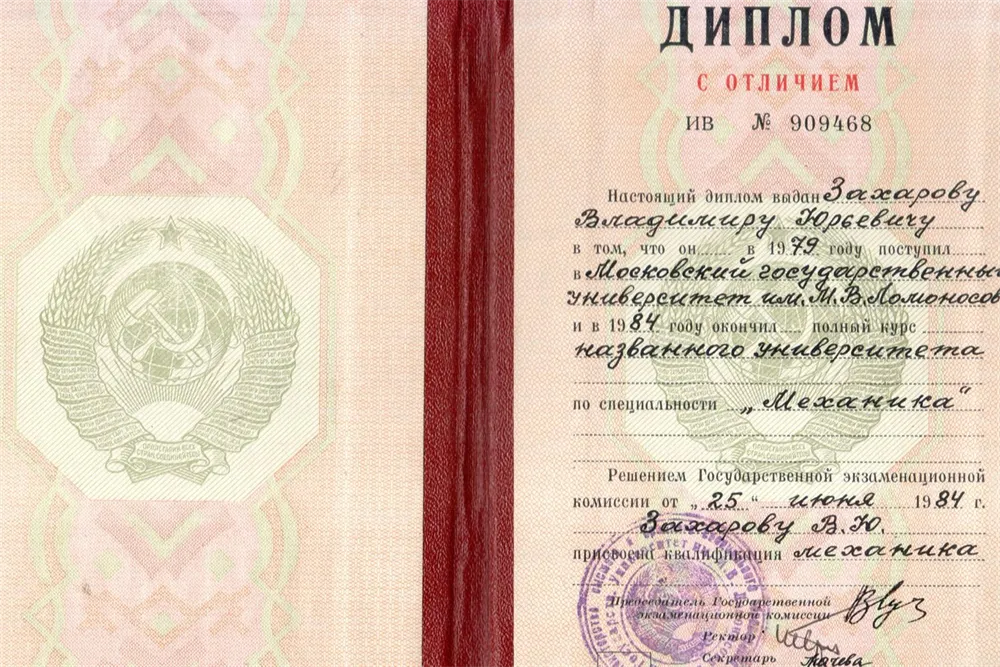 ДИПЛОМ
С ОТЛИЧИЕМ
ИВ № 909468
Настоящий диплом выдан Захарову
Владимиру Юрьевичу
в том, что он в 1979 году поступил
в Московский государственный
университет им. М.В.Ломоносов
и в 1984 году окончил полный курс
названного университета
по специальности „Механика“
Решением Государственной экзаменационной
комиссии от „25“ июня 1984 г.
Захарову В.Ю.
присвоена квалификация механика
Председатель Государственной
экзаменационной комиссии
Ректор
Секретарь